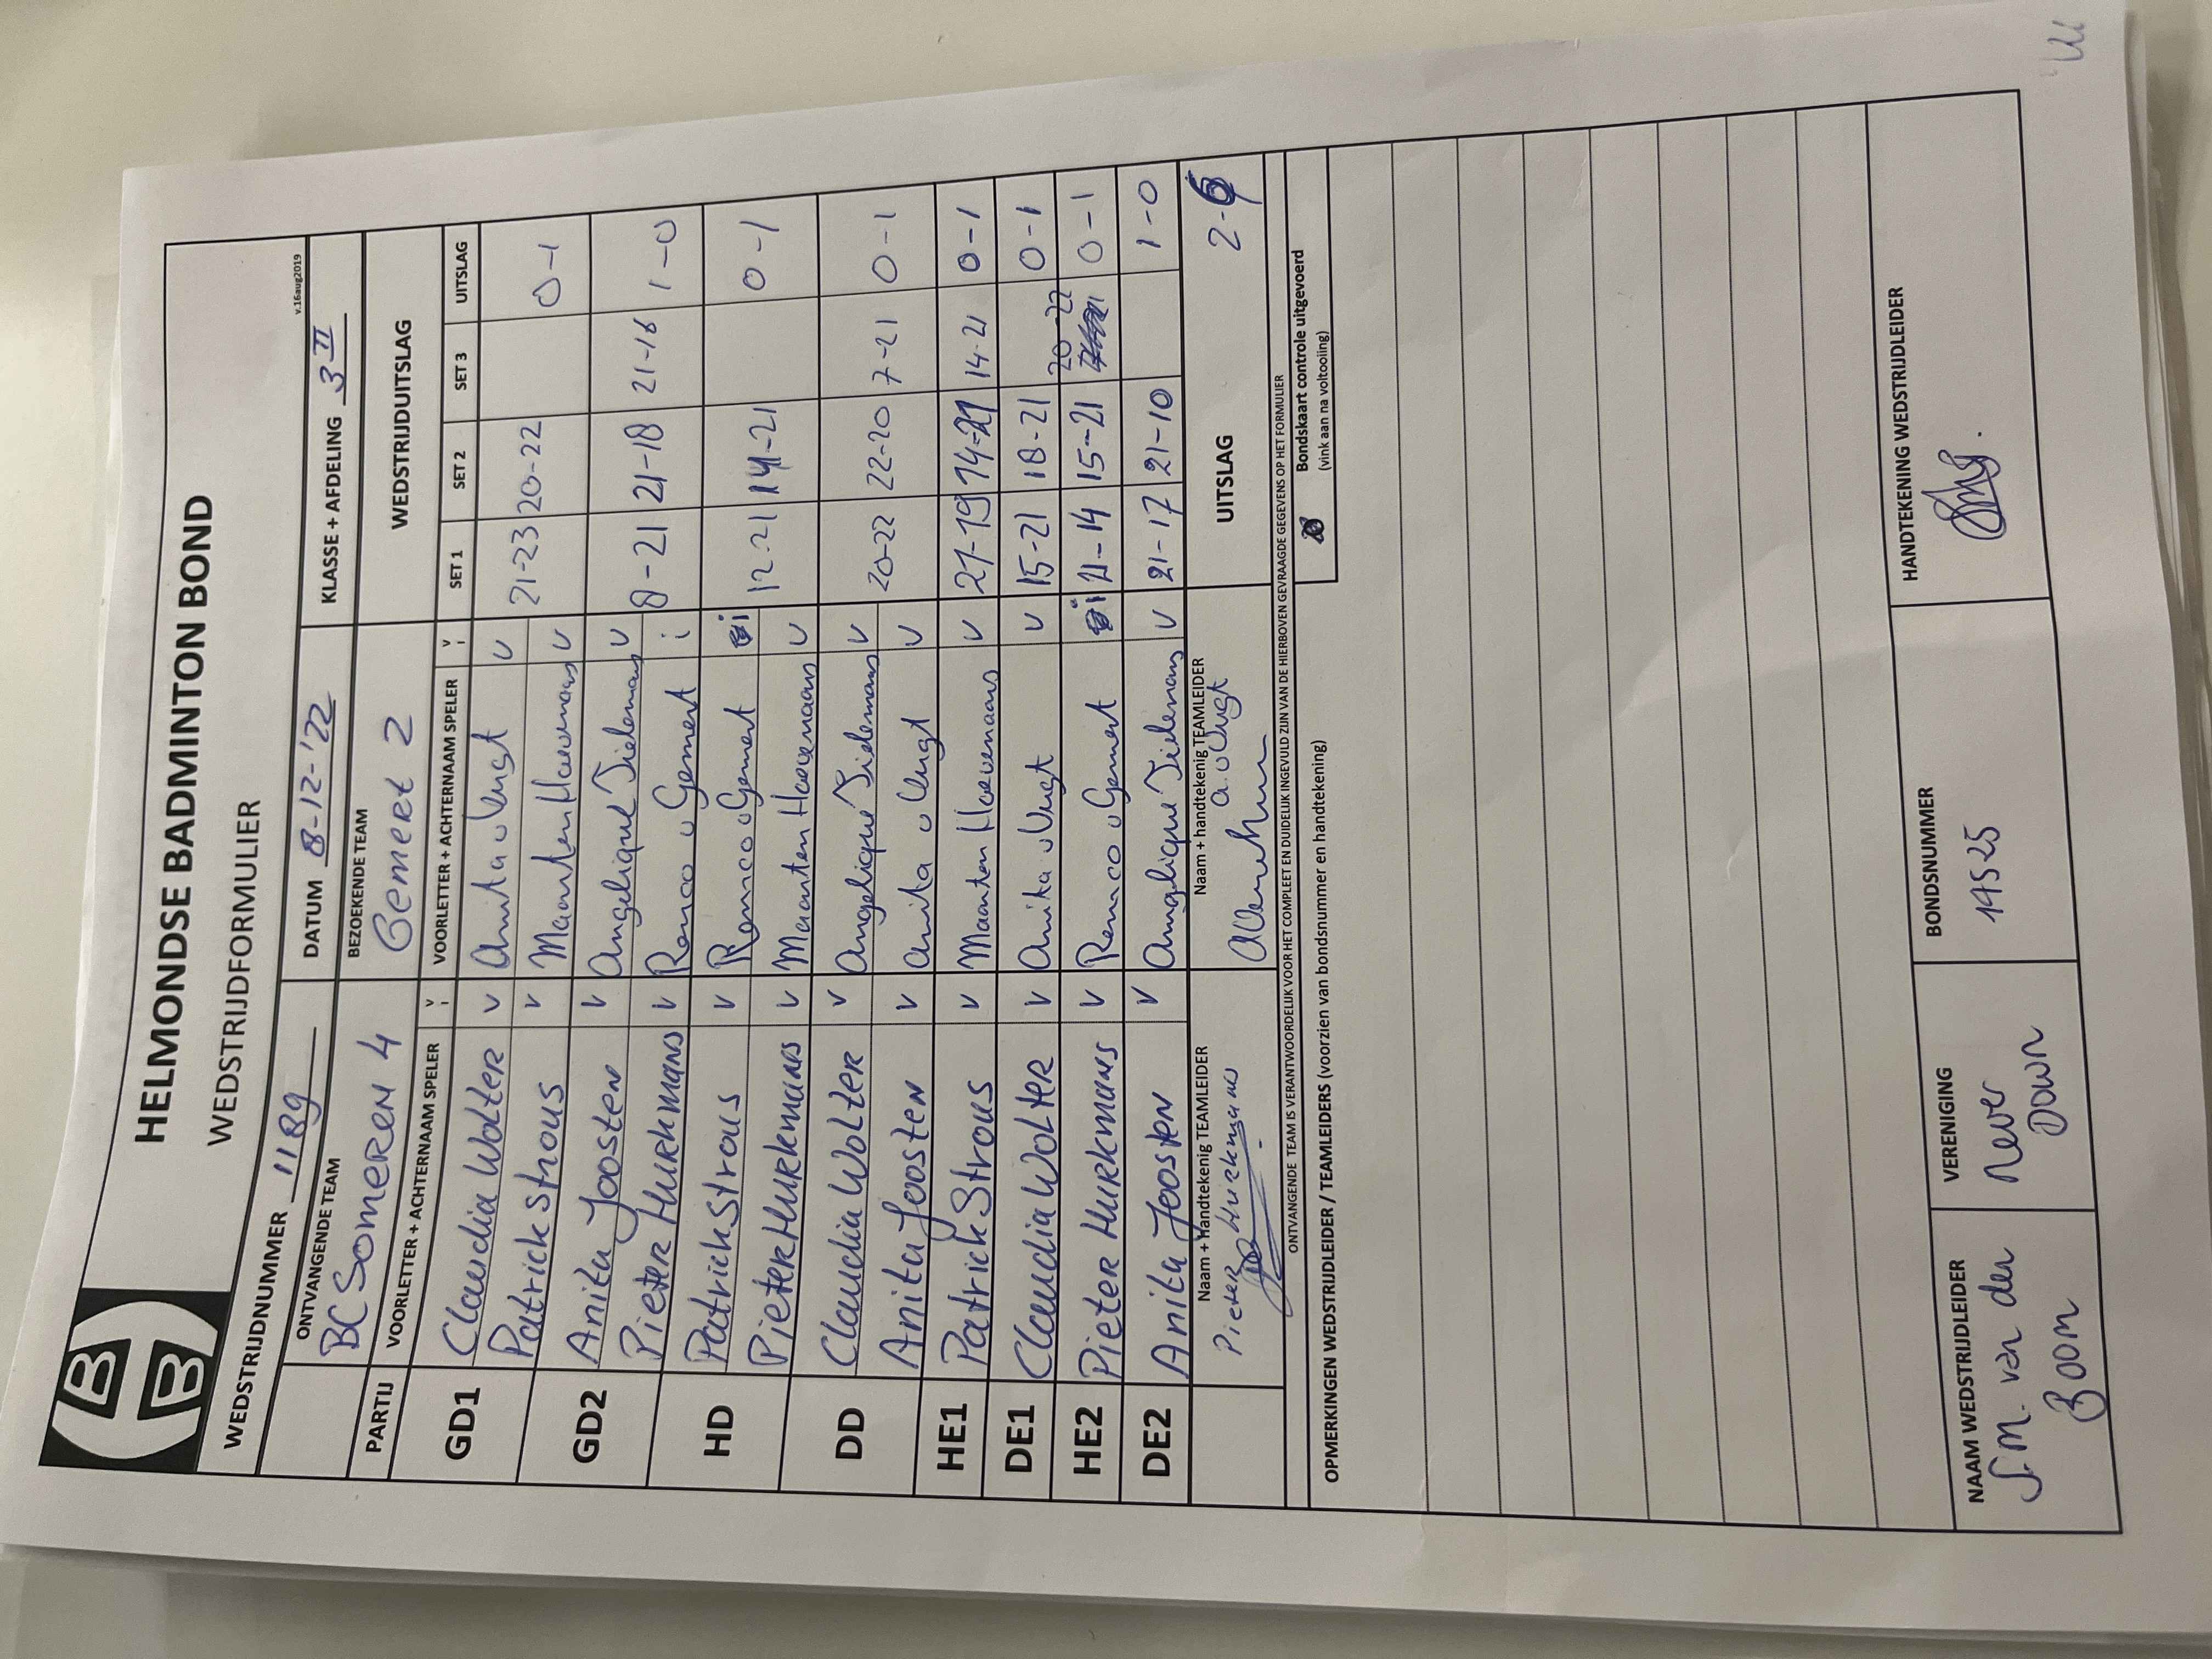 HELMONDSE BADMINTON BOND
WEDSTRIJDFORMULIER
v.16aug2019
WEDSTRIJDNUMMER 1189 DATUM 8-12-'22 KLASSE + AFDELING 3 II
ONTVANGENDE TEAM BEZOEKENDE TEAM WEDSTRIJDUITSLAG
BC SOMEREN 4 Gemert 2
PARTIJ VOORLETTER + ACHTERNAAM SPELER V i VOORLETTER + ACHTERNAAM SPELER V i SET 1 SET 2 SET 3 UITSLAG
GD1 Claudia Wolter V Anita v Vugt V
Patrick Strous V Maarten Hoevenaars V 21-23 20-22 0-1
GD2 Anita Joosten V Angelique Tielemans V
Pieter Hurkmans V Remco v Gemert i 8-21 21-18 21-16 1-0
HD Patrick Strous V Remco v Gemert i
Pieter Hurkmans V Maarten Hoevenaars V 12-21 14-21 0-1
DD Claudia Wolter V Angelique Tielemans V
Anita Joosten V Anita v Vugt V 20-22 22-20 7-21 0-1
HE1 Patrick Strous V Maarten Hoevenaars V 21-19 14-21 14-21 0-1
DE1 Claudia Wolter V Anita v Vugt V 15-21 18-21 0-1
HE2 Pieter Hurkmans V Remco v Gemert i 21-14 15-21 20-22 0-1
DE2 Anita Joosten V Angelique Tielemans V 21-17 21-10 1-0
Naam + Handtekenig TEAMLEIDER Naam + handtekenig TEAMLEIDER UITSLAG 2-6
Pieter Hurkmans a. v Vugt
ONTVANGENDE TEAM IS VERANTWOORDELIJK VOOR HET COMPLEET EN DUIDELIJK INGEVULD ZIJN VAN DE HIERBOVEN GEVRAAGDE GEGEVENS OP HET FORMULIER
OPMERKINGEN WEDSTRIJDLEIDER / TEAMLEIDERS (voorzien van bondsnummer en handtekening) Bondskaart controle uitgevoerd
(vink aan na voltooiing)
NAAM WEDSTRIJDLEIDER VERENIGING BONDSNUMMER HANDTEKENING WEDSTRIJDLEIDER
J.M. van der Never 14525
Boom Down